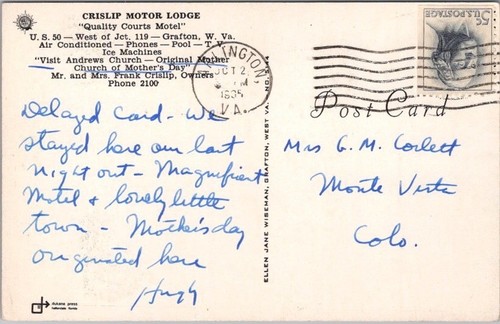 CRISLIP MOTOR LODGE
"Quality Courts Motel"
U.S. 50 — West of Jct. 119 — Grafton, W. Va.
Air Conditioned — Phones — Pool — T.V.
Ice Machines
"Visit Andrews Church — Original Mother
Church of Mother's Day"
Mr. and Mrs. Frank Crislip, Owners
Phone 2100
LINGTON
OCT 2
VA.
5¢ U.S. POSTAGE
Post Card
Delayed Card - We
stayed here our last
night out - Magnificent
Motel & lovely little
town - Mothers day
originated here
Hugh
Mrs G. M. Corlett
Monte Vista
Colo.
ELLEN JANE WISEMAN, GRAFTON, WEST VA.
dukane press